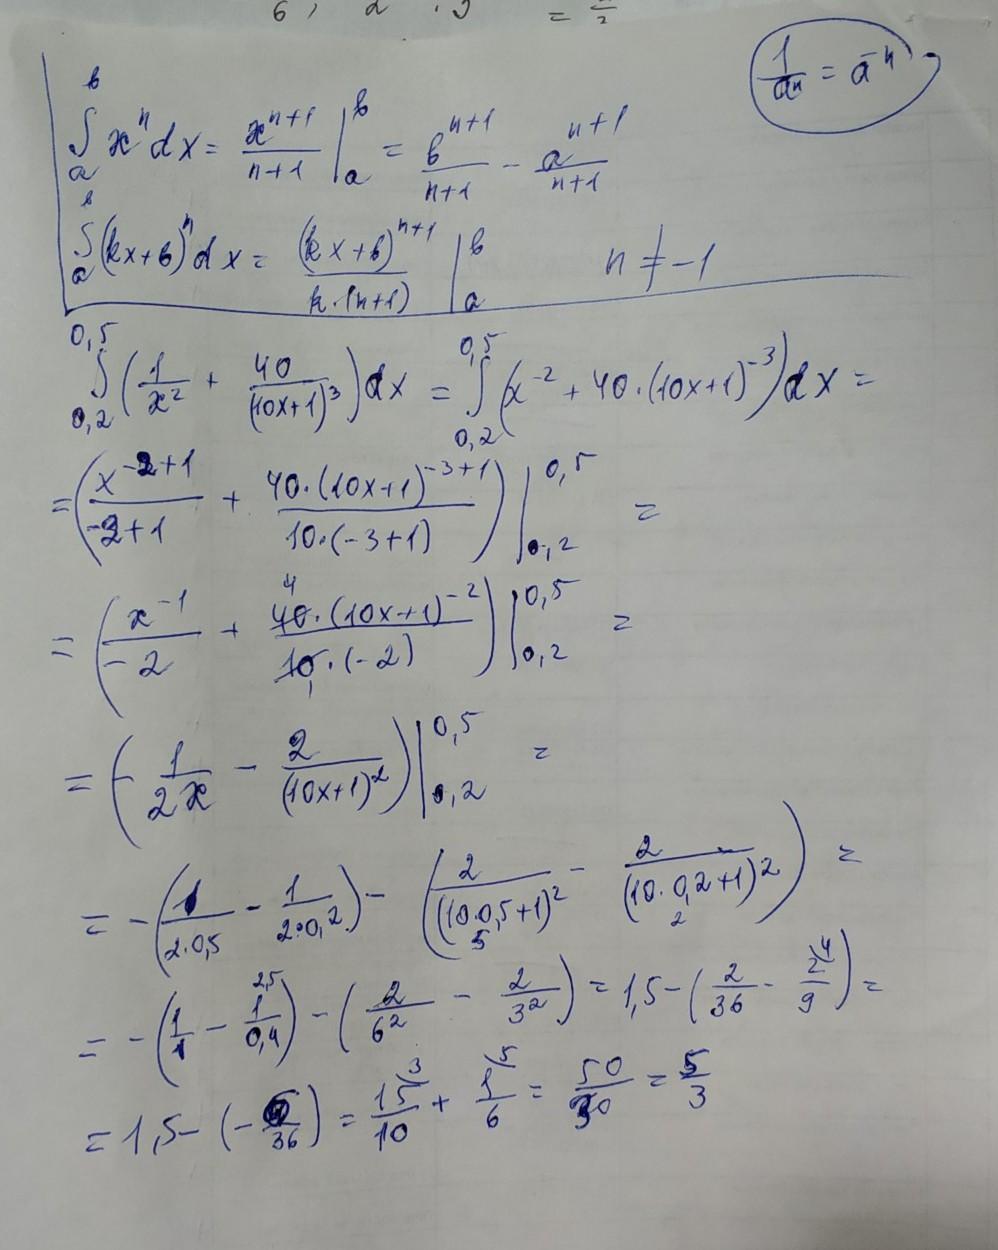 6 , 2 . 9 = π/2
1/aⁿ = a⁻ⁿ
∫ₐᵇ xⁿdx = xⁿ⁺¹/(n+1) |ₐᵇ = bⁿ⁺¹/(n+1) - aⁿ⁺¹/(n+1)
∫ₐᵇ (kx+b)ⁿdx = (kx+b)ⁿ⁺¹/(k·(n+1)) |ₐᵇ n ≠ -1
∫_{0,2}^{0,5} (1/x² + 40/(10x+1)³)dx = ∫_{0,2}^{0,5} (x⁻² + 40·(10x+1)⁻³)dx =
= (x⁻²⁺¹/(-2+1) + 40·(10x+1)⁻³⁺¹/(10·(-3+1))) |_{0,2}^{0,5} =
= (x⁻¹/(-2) + 40·(10x+1)⁻²/(10·(-2))) |_{0,2}^{0,5} =
= (- 1/(2x) - 2/(10x+1)²) |_{0,2}^{0,5} =
= -(1/(2·0,5) - 1/(2·0,2)) - (2/(10·0,5+1)² - 2/(10·0,2+1)²) =
= -(1/1 - 1/0,4) - (2/6² - 2/3²) = 1,5 - (2/36 - 2/9) =
= 1,5 - (-6/36) = 15/10 + 1/6 = 50/30 = 5/3